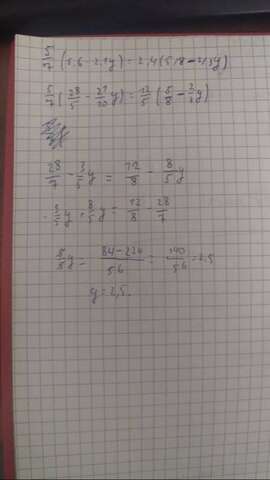 5/7 (5,6 - 2,1y) = 2,4(5/8 - 2/3y)
5/7 (28/5 - 21/10 y) = 12/5 (5/8 - 2/3 y)
28/7 - 3/5 y = 12/8 - 8/5 y
y + 8/5 y = 12/8 - 28/7
5/5 y = 84-224/56 = 140/56 = 2,5
y = 2,5